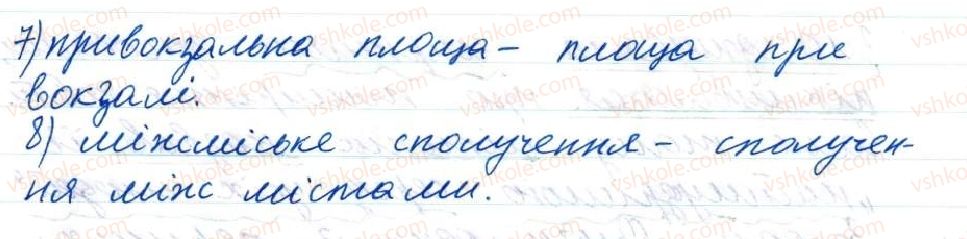 7) привокзальна площа – площа при
вокзалі.
8) міжміське сполучення – сполучен-
ня між містами.